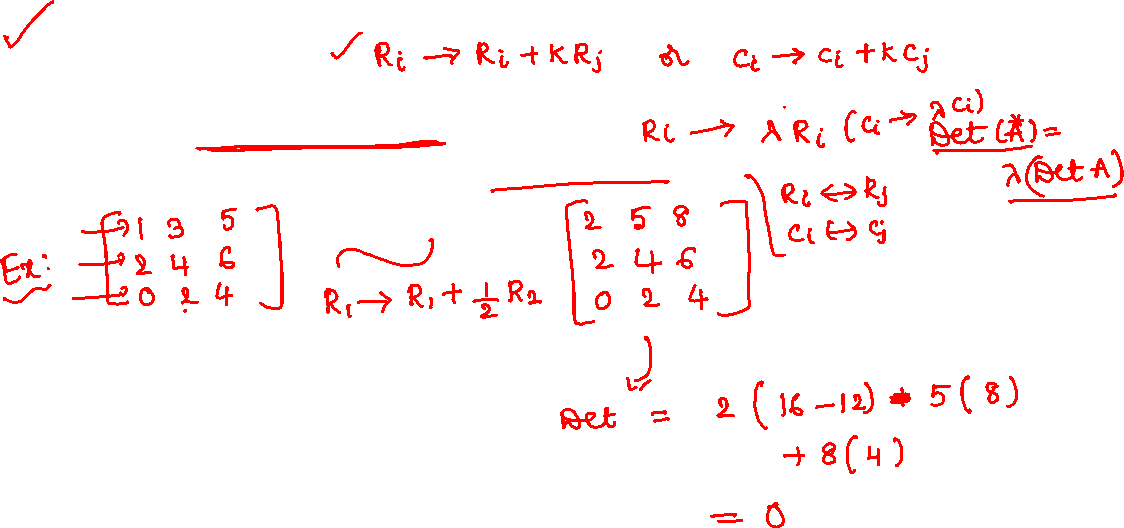 ✓ Ri → Ri + K Rj or Ci → Ci + K Cj
Ri → λ Ri (Ci → λ Ci)
Det (A*) =
λ(Det A)
Ri ↔ Rj
Ci ↔ Cj
Ex: [1 3 5
2 4 6
0 2 4]
R1 → R1 + 1/2 R2
[2 5 8
2 4 6
0 2 4]
Det = 2 (16 - 12) - 5 (8)
+ 8 (4)
= 0